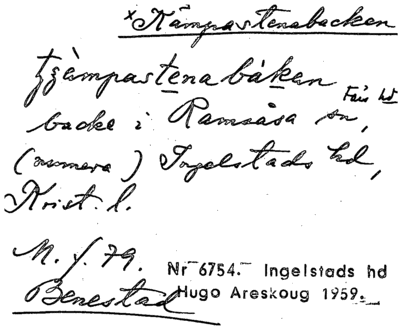 ×Kämpastenabacken
tjämpastenabáken
Färs hd
backe i Ramsåsa sn,
(numera) Ingelstads hd,
Krist. l.
M. f. 79.
Nr 6754. Ingelstads hd
Benestad
Hugo Areskoug 1959.